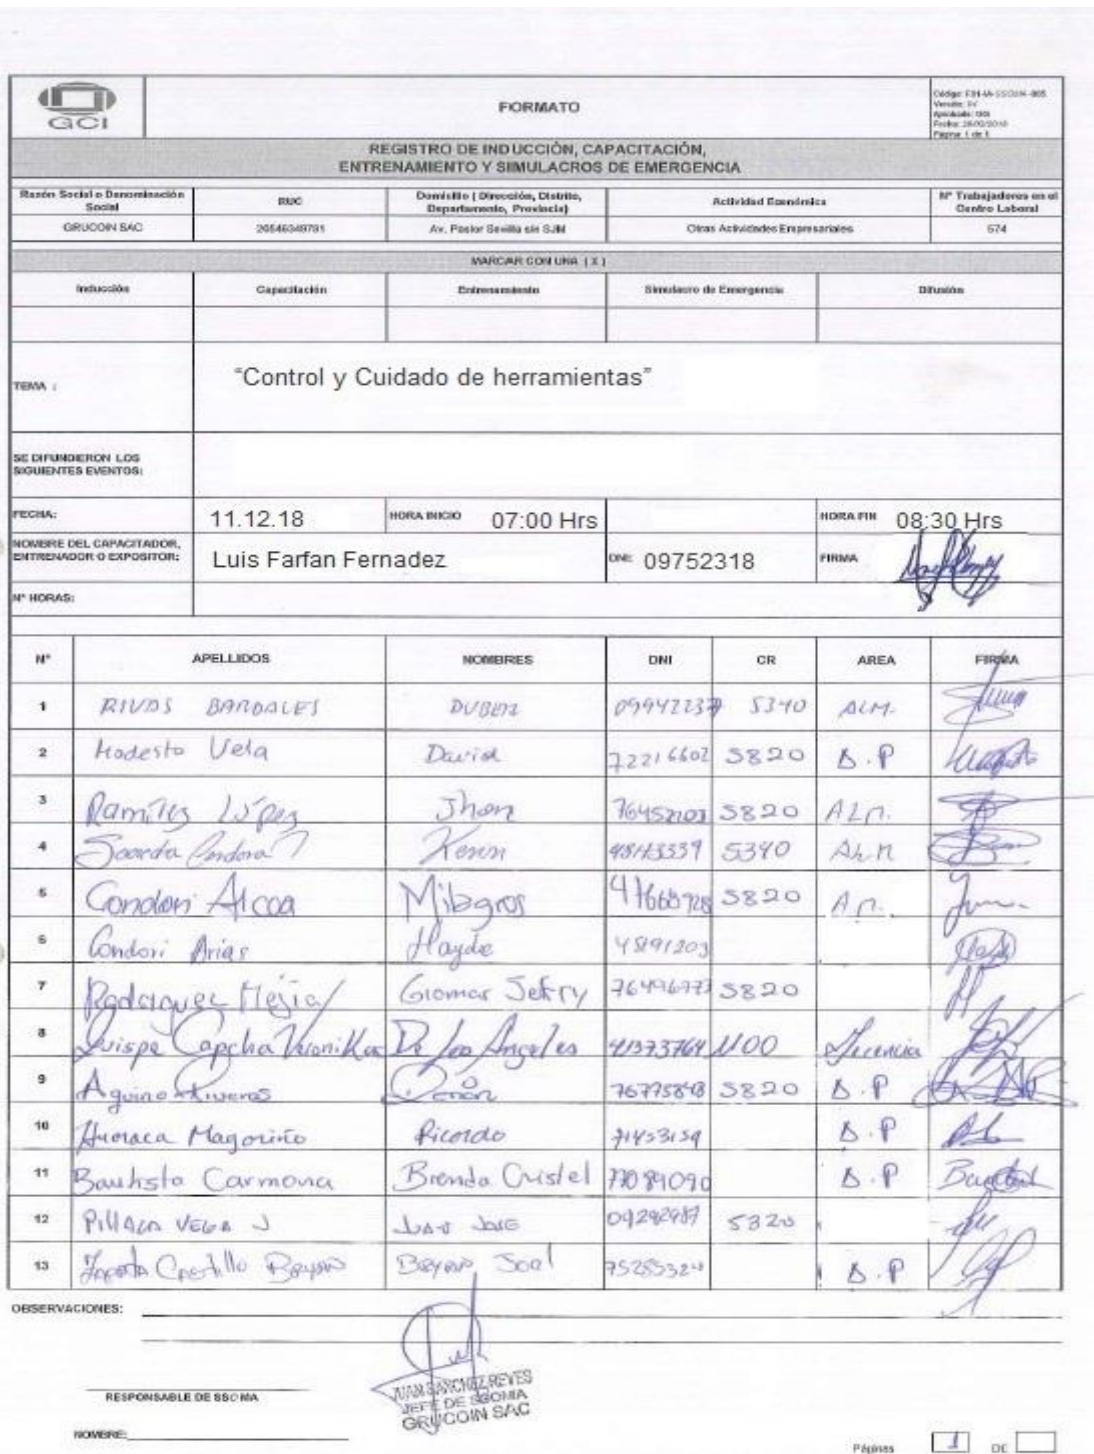 GCI
FORMATO
Versión: 04
Página: 1 de 1
REGISTRO DE INDUCCIÓN, CAPACITACIÓN,
ENTRENAMIENTO Y SIMULACROS DE EMERGENCIA
Razón Social o Denominación Social RUC Domicilio ( Dirección, Distrito, Departamento, Provincia) Actividad Económica Nº Trabajadores en el Centro Laboral
GRUCOIN SAC 20546349791 Av. Pastor Sevilla s/n SJM Otras Actividades Empresariales 574
MARCAR CON UNA ( X )
Inducción Capacitación Entrenamiento Simulacro de Emergencia Difusión
TEMA : "Control y Cuidado de herramientas"
SE DIFUNDIERON LOS
SIGUIENTES EVENTOS:
FECHA: 11.12.18 HORA INICIO 07:00 Hrs HORA FIN 08:30 Hrs
NOMBRE DEL CAPACITADOR,
ENTRENADOR O EXPOSITOR: Luis Farfan Fernadez DNI: 09752318 FIRMA
Nº HORAS:
Nº APELLIDOS NOMBRES DNI CR AREA FIRMA
1 RIVAS BARDALES 5340 ALM.
2 Modesto Vela David 72216602 5820 D.P
3 Ramírez López Jhon 5820 ALM.
4 Kevin 5340 ALM
5 Condori Alcoa Milagros 5820
6 Condori Arias Hayde 48191203
7 Rodriguez Mejia Giomar Jefry 5820
8 Quispe Capcha Veronika De Los Angeles 41373764 1100
9 Aquino Riveros 5820 D.P
10 Huoraca Magoriño Ricardo 71453159 D.P
11 Bautista Carmona Brenda Cristel 77089090 D.P
12 PILLACA VEGA J JUAN JOSE 5320
13 Zapata Castillo Brayan Brayan Joel D.P
OBSERVACIONES:
JUAN SANCHEZ REYES
JEFE DE SSOMA
GRUCOIN SAC
RESPONSABLE DE SSOMA
NOMBRE:
Páginas 1 DE